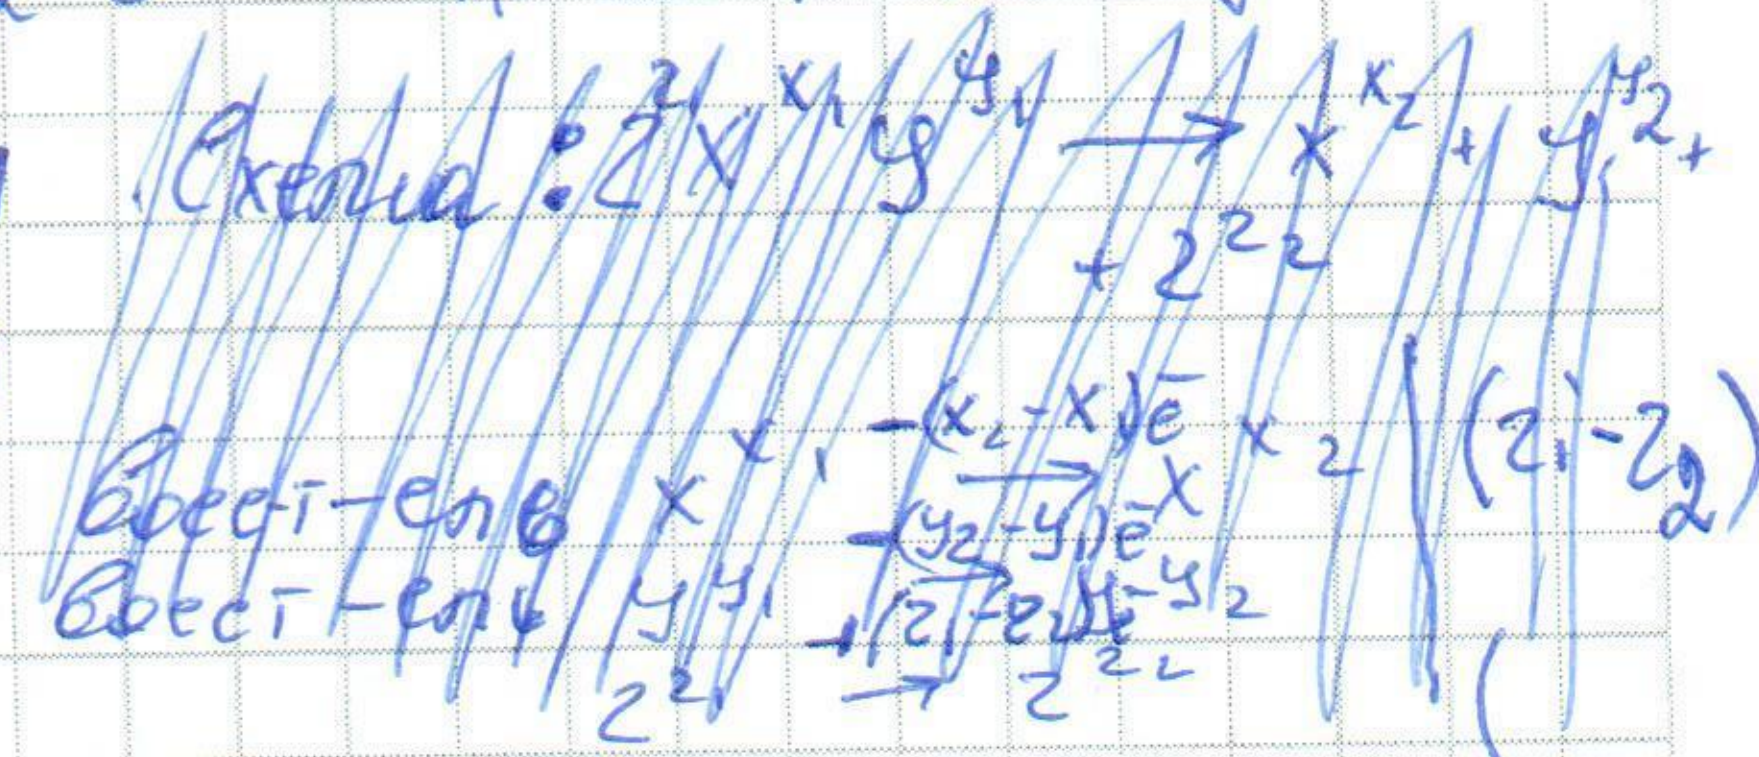 Схема: Z^z X^x₁ y^y₁ → X^x₂ + y^y₂ +
+ Z^z₂
Восст-ель X^x₁ -(x₂-x₁)ē → X^x₂ | (z₁-z₂)
восст-ель y^y₁ -(y₂-y₁)ē → y^y₂ (
Z^z₁ +(z₁-z₂)ē → Z^z₂